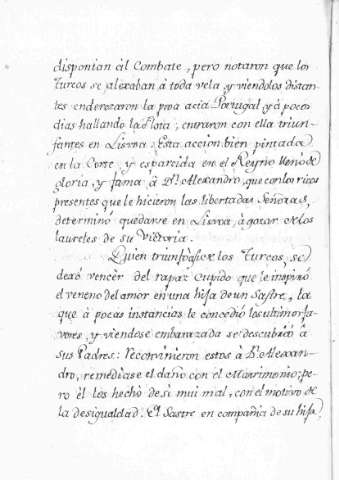 disponian âl Combate, pero notaron que los
Turcos se alexaban â toda vela, y viendolos distan-
tes enderezaron la proa acia Portugal, y â pocos
dias hallando la Flota, entraron con ella triun-
fantes en Lisvoa: Esta accion bien pintada
en la Corte, y esparcida en el Reyno llenò de
gloria, y fama â Dn. Alexandro, que con los ricos
presentes que le hicieron las libertadas Señoras,
determinó quedarse en Lisvoa, â gozar de los
laureles de su Victoria.
Quien triunfò assi de los Turcos, se
dexó vencer del rapaz Cupido que le inspiró
el veneno del amor en una hija de un Sastre, la
que â pocas instancias le concedió los ultimos fa-
vores, y viendose embarazada se descubrió â
sus Padres: Reconvinieron estos â Dn. Alexan-
dro, remediase el daño con el Matrimonio; pe-
ro èl los hechó de si mui mal, con el motivo de
la desigualdad. El Sastre en compañia de su hija,